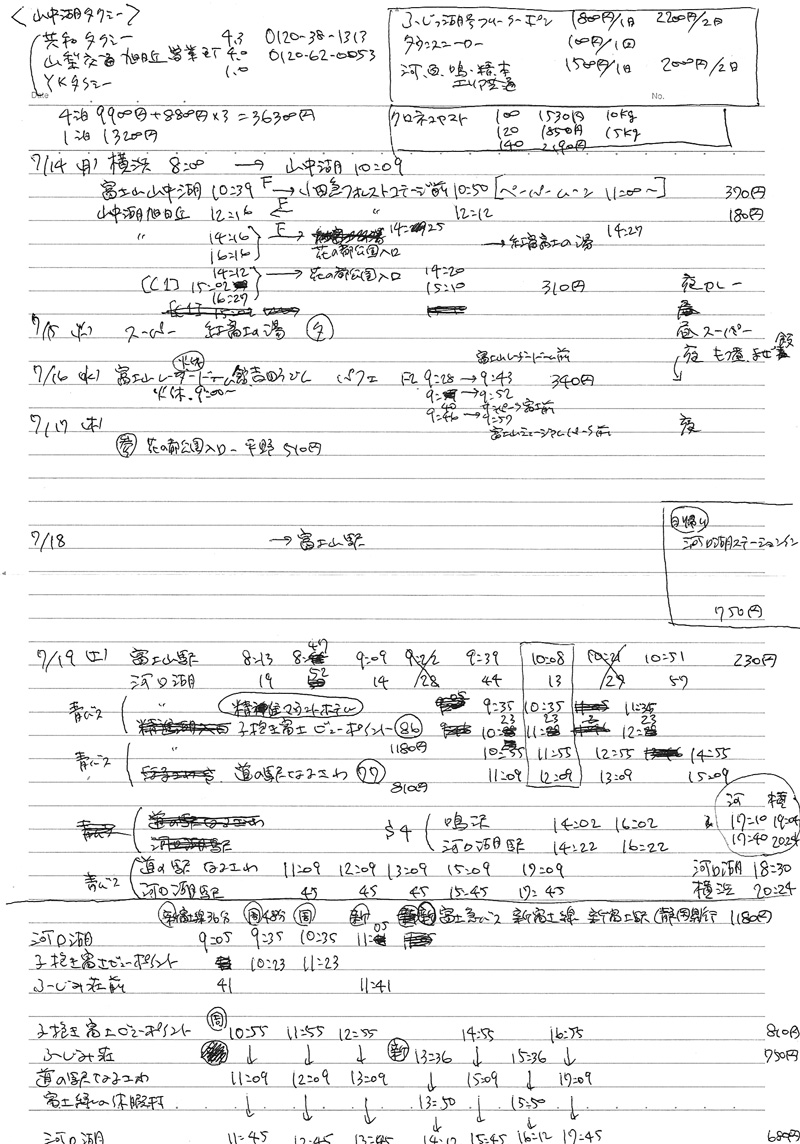 〈山中湖タクシー〉
共和タクシー 4.3 0120-38-1313
山梨交通 旭日丘営業所 4.0 0120-62-0053
YKタクシー 1.0
ふじっ湖号フリークーポン 1800円/1日 2200円/2日
100円/1回
河、西、鳴・精・本 1500円/1日 2000円/2日
エリア共通
Date
No.
4泊 9900円+8800円×3=36300円
1泊 1320円
クロネコヤマト 100 1530円 10kg
120 1850円 15kg
140 2190円
7/14 (月) 横浜 8:00 → 山中湖 10:09
富士山山中湖 10:39 F→ 小田急フォレストコテージ前 10:50 [ペーパームーン 11:00〜] 370円
山中湖旭日丘 12:16 F← 〃 12:12 180円
〃 14:16 F→ 花の都公園入口 14:25 → 紅富士の湯 14:27
16:16
[C1] 14:12 → 花の都公園入口 14:20
15:02 15:10 310円 夜カレー
16:27
7/15 (火) スーパー 紅富士の湯 昼スーパー
夜
7/16 (水) 富士山レーダードーム館 吉田うどん パフェ 富士山レーダードーム前
火休 9:00〜
F2 9:28→9:43 340円
9:40→9:52
9:46→9:57
富士山ミュージアムパーク前
7/17 (木) 夜
花の都公園入口ー平野 510円
7/18 → 富士山駅
日帰り
河口湖ステーションイン
750円
7/19 (土) 富士山駅 8:13 8:47 9:09 9:22 9:39 10:08 10:21 10:51 230円
河口湖 19 52 14 28 44 13 29 57
青バス 〃 精進マウントホテル 9:35 10:35 11:35
子抱き富士ビューポイント 86 10:23 11:23 12:23
1180円
青バス 〃 10:55 11:55 12:55 14:55
道の駅なるさわ 77 11:09 12:09 13:09 15:09
810円
河 横
17:10 19:04
17:40 2024
$4 鳴沢 14:02 16:02
河口湖駅 14:22 16:22
青バス 道の駅 なるさわ 11:09 12:09 13:09 15:09 17:09 河口湖 18:30
河口湖駅 45 45 45 15:45 17:45 横浜 20:24
新富士線36分 周48分 周 新 新 富士急バス 新富士線 新富士駅(静岡県)行 1180円
河口湖 9:05 9:35 10:35 11:05
子抱き富士ビューポイント 10:23 11:23
ふじみ荘前 41 11:41
周
子抱き富士ビューポイント 10:55 11:55 12:55 14:55 16:55 810円
ふじみ荘 ↓ ↓ ↓ 新 13:36 ↓ 15:36 ↓ 750円
道の駅なるさわ 11:09 12:09 13:09 ↓ 15:09 ↓ 17:09
富士緑の休暇村 ↓ ↓ ↓ 13:50 ↓ 15:50 ↓
河口湖 11:45 12:45 13:45 14:12 15:45 16:12 17:45 680円